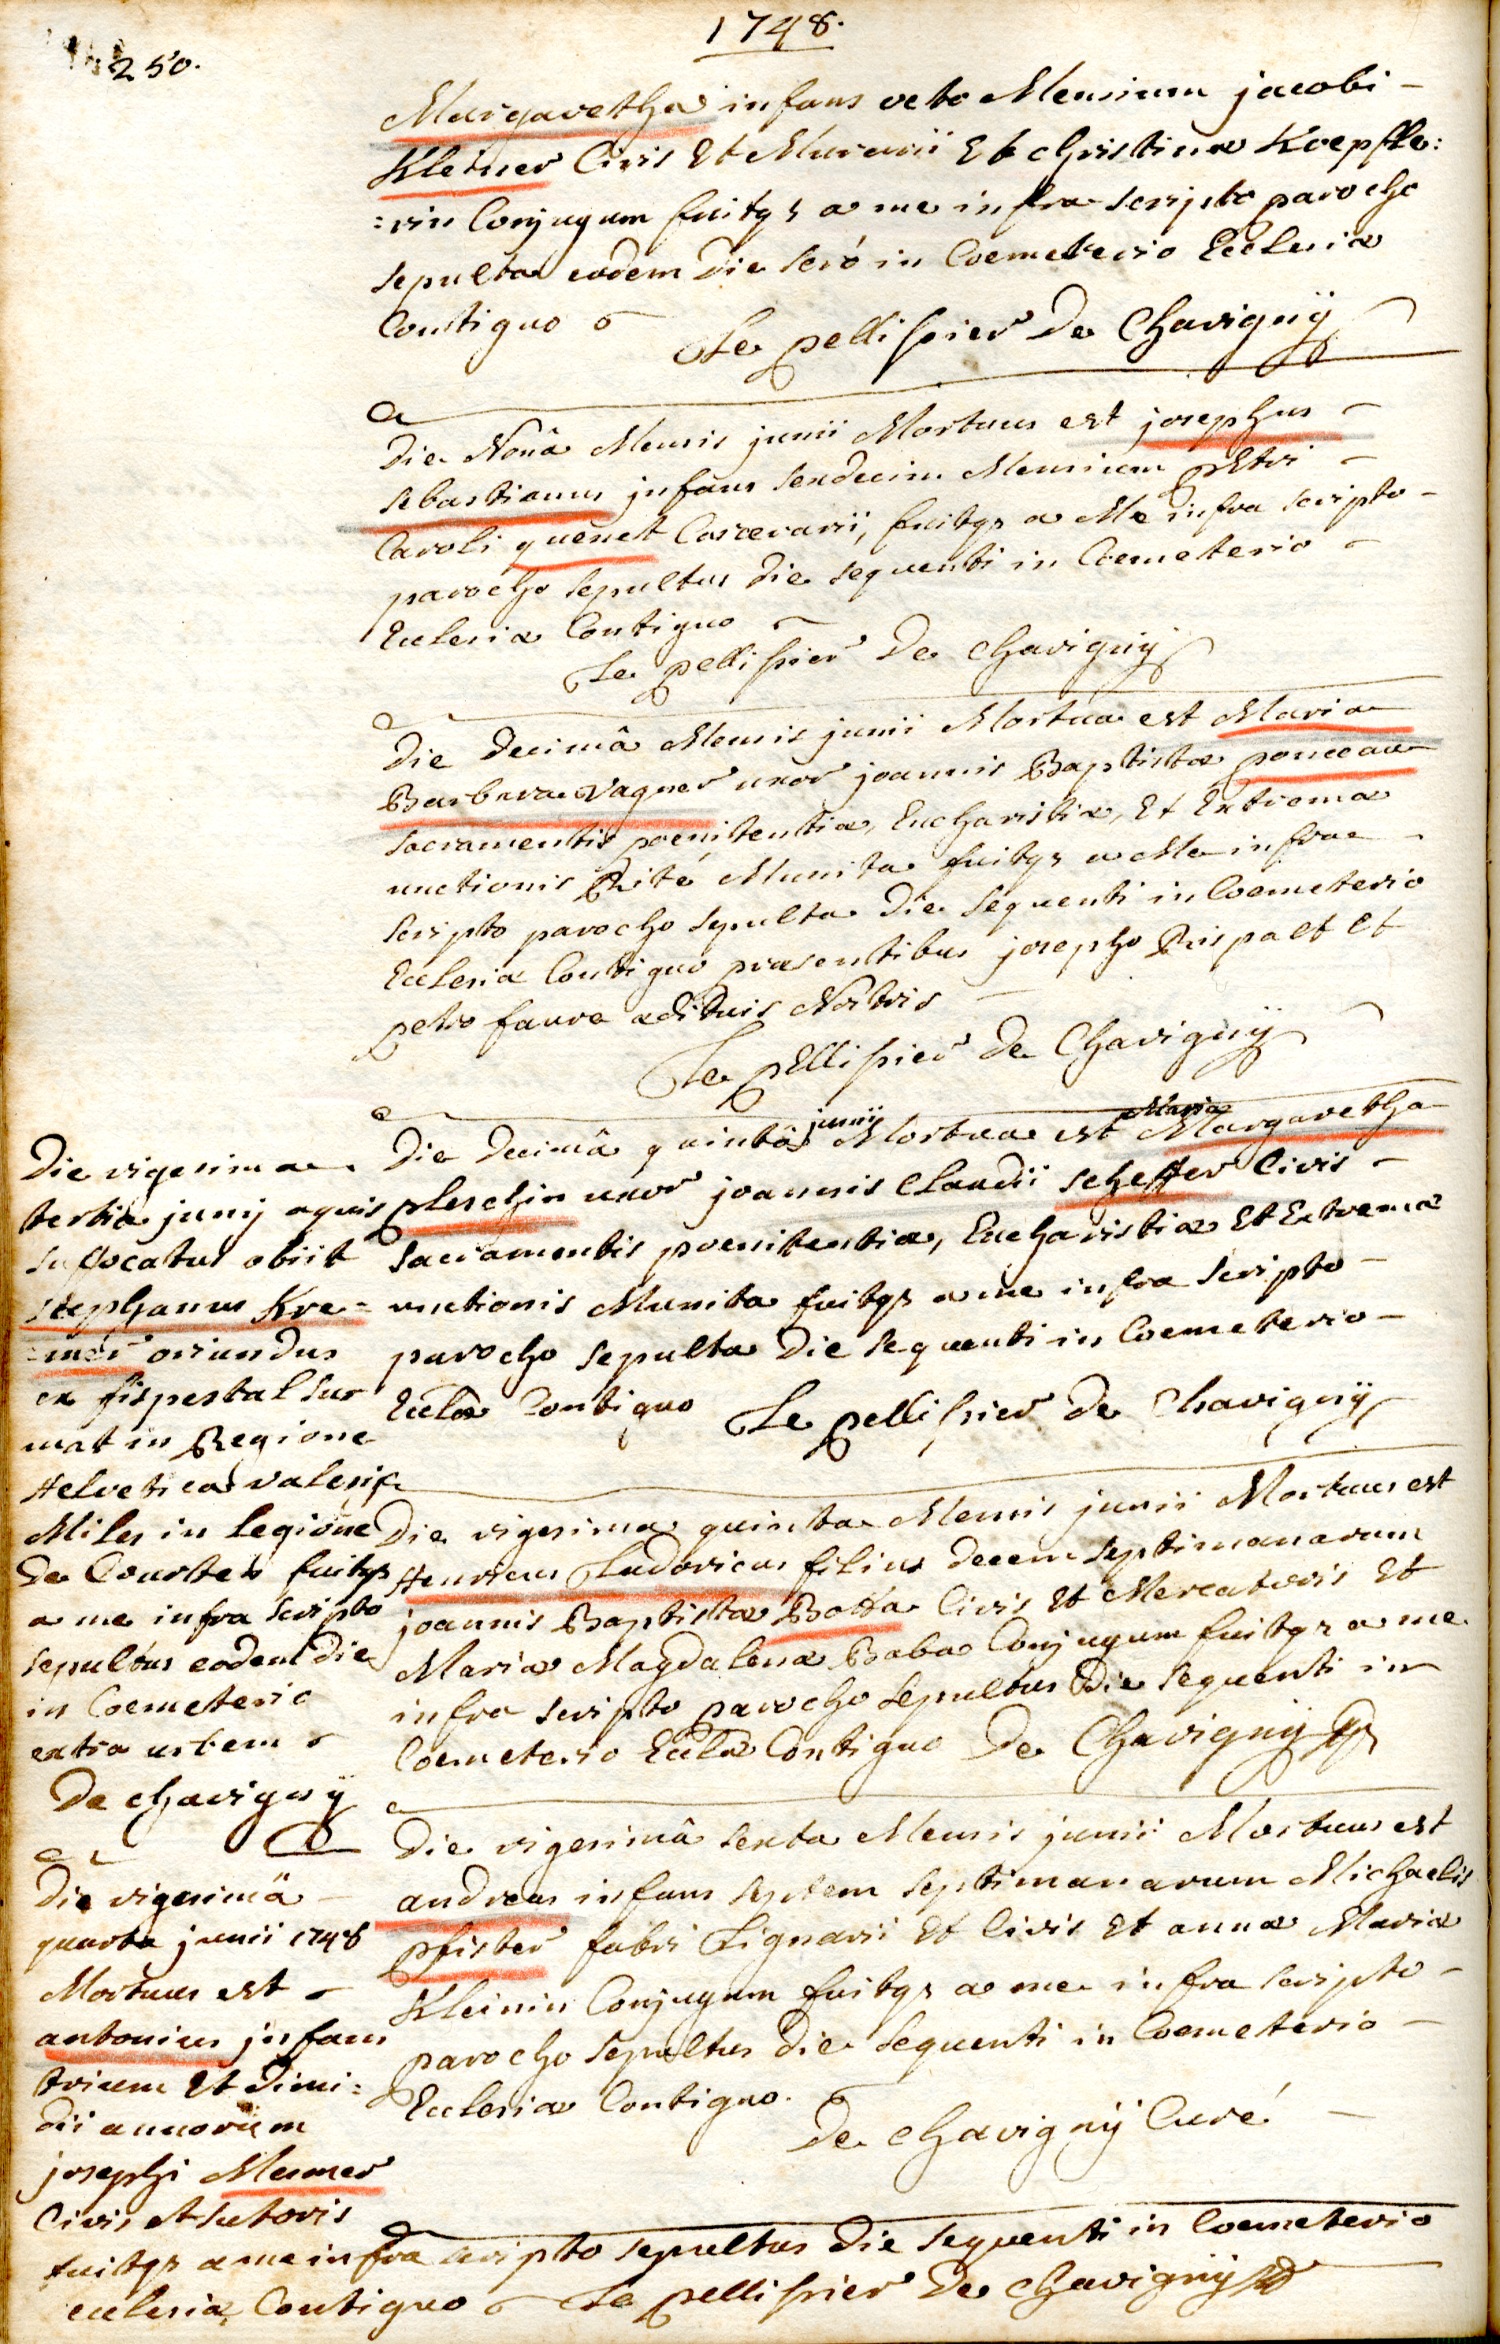 1748.
250.
Margaretha infans octo Mensium jacobi -
Kleiner Civis Et Murarii Et christinæ Koepffle:
=rin Conjugum fuitqz a me infra scripto parocho
sepulta eodem die seró in Coemeterio Ecclesiæ
Contiguo
Le pellissier De Chavignÿ
Die Nonâ Mensis junii Mortuus est josephus -
sebastianus jnfans sexdecim Mensium pEtri -
Caroli quenet Carcerarii, fuitqz a Me infra scripto -
parocho sepultus die sequenti in Coemeterio -
Ecclesiæ Contiguo
Le pellissier De chavignÿ
Die Decimâ Mensis junii Mortua est Maria
Barbara Vagner uxor joannis Baptistæ ponceau
sacramentis poenitentiæ, Eucharistiæ, Et Extremæ
unctionis Rité Munita fuitqz a Me infra -
scripto parocho sepulta Die sequenti in Coemeterio
Ecclesiæ Contiguo præsentibus josepho Rispalt Et
petro faure ædituis Nostris -
Le pEllissier De Chavignÿ
Die Decimâ quintâ junii Mortua est Maria Margaretha
pleschin uxor joannis Claudii scheffer Civis -
sacramentis poenitentiæ, Eucharistiæ Et Extremæ
unctionis Munita fuitqz a me infra scripto -
parocho sepulta Die sequenti in Coemeterio -
Eclæ Contiguo Le pellissier De Chavignÿ
Die vigesima quinta Mensis junii Mortuus est
Henricus Ludovicus filius decem septimanarum
joannis Baptistæ Botta Civis Et Mercatoris Et
Mariæ Magdalenæ Baba Conjugum fuitqz a me
infra scripto parocho sepultus Die sequenti in
Coemeterio Eclæ Contiguo De Chavignÿ
Die vigesimâ sexta Mensis junii Mortuus est
andreas infans septem septimanarum Michaelis
pfister fabri Lignarii Et Civis Et annæ Mariæ
Kleinin Conjugum fuitqz a me infra scripto -
parocho sepultus die sequenti in Coemeterio -
Ecclesiæ Contiguo.
De chavignÿ Curé -
Die vigesima
tertia junij aquis
suffocatus obiit
stephanus Kre=
=mer oriundus
ex
in Regione
Helvetica
Miles in legione
De Courten fuitqz
a me infra scripto
sepultus eodem die
in Coemeterio
extra urbem
De chavignÿ
Die vigesimâ -
quarta junii 1748
Mortuus est -
antonius jnfans
trium Et dimi=
dii annorum
josephi Mesmer
Civis et sutoris
fuitqz a me infra scripto sepultus Die sequenti in Coemeterio
ecclesiæ Contiguo Le pellissier De chavignÿ